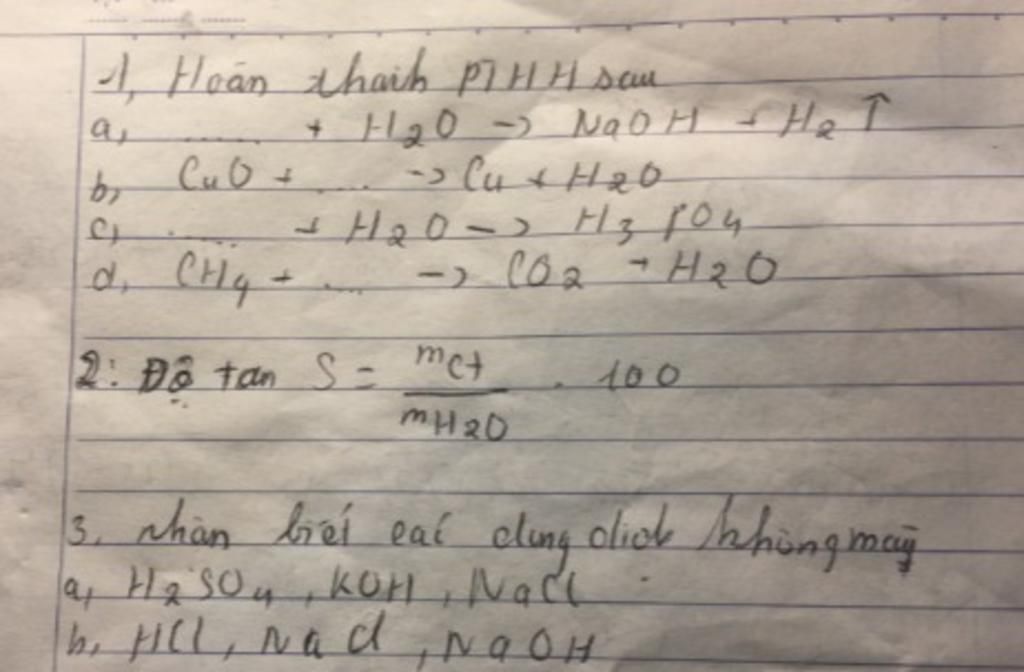 1, Hoàn thành PTHH sau
a, ...... + H2O -> NaOH + H2 ↑
b, CuO + .... -> Cu + H2O
c, ...... + H2O -> H3PO4
d, CH4 + .... -> CO2 + H2O
2: Độ tan S = mct / mH2O . 100
3. nhận biết các dung dịch không màu
a, H2SO4, KOH, NaCl
b, HCl, NaCl, NaOH